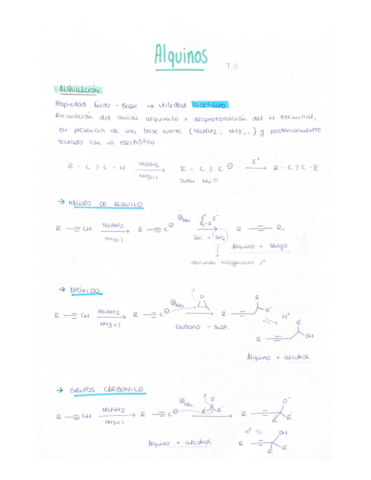 Alquinos
T.6
ALQUILACIÓN
Propiedad ácido - Base → utilidad sintética
Formación del anión alquinilo + desprotonación del H terminal,
en presencia de una base fuerte (NaNH2, ...) y posteriormente
tratado con un electrófilo
R - C ≡ C - H NaNH2 NH3(l) R - C ≡ C ⊖ E⁺ R - C ≡ C - E
buen Nu ⊖
→ HALURO DE ALQUILO
R - ≡ CH NaNH2 NH3(l) R - ≡ C ⊖ ⊕Na R - ≡ - R,
Alquino + largo
derivado halogenado 1º
→ EPÓXIDO
R - ≡ CH NaNH2 NH3(l) R - ≡ C ⊖ ⊕Na O R O⁻
H⁺
R OH
Alquino + alcohol
→ GRUPOS CARBONILO
R - ≡ CH NaNH2 NH3(l) R - ≡ C ⊖ ⊕Na O R R R O⁻ R R
Alquino + alcohol
R OH R R